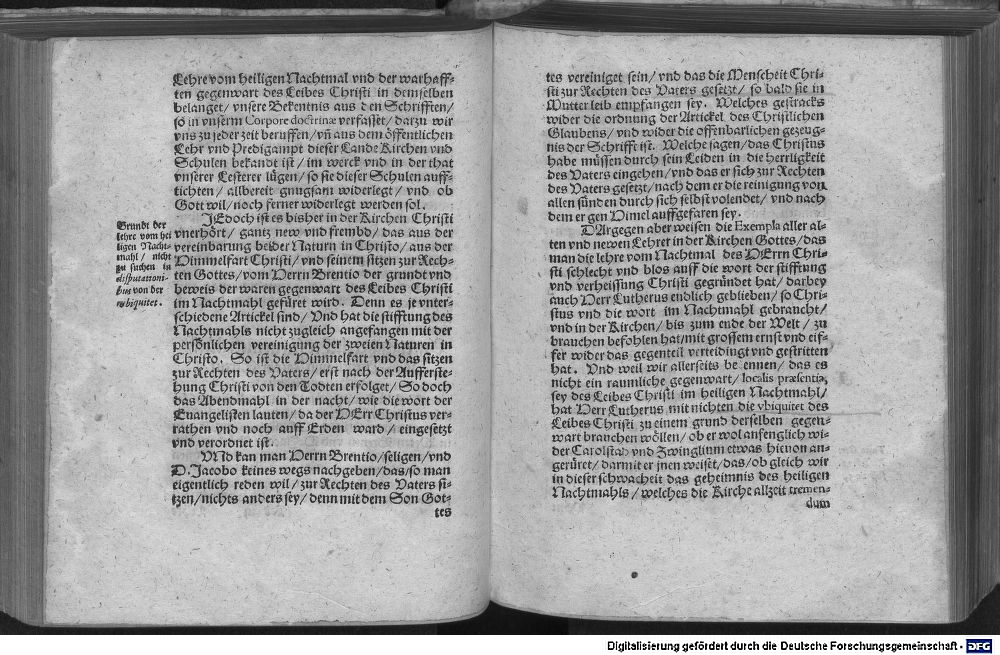 Lehre vom heiligen Nachtmal vnd der warhaff-
ten gegenwart des Leibes Christi in demselben
belanget / vnsere Bekentnis aus den Schrifften /
so in vnserm Corpore doctrinæ verfasset / darzu wir
vns zu jeder zeit beruffen / vñ aus dem öffentlichen
Lehr vnd Predigampt dieser Lande Kirchen vnd
Schulen bekandt ist / im werck vnd in der that
vnserer Lesterer lügen / so sie dieser Schulen auff-
tichten / allbereit gnugsam widerlegt / vnd ob
Gott wil / noch ferner widerlegt werden sol.
JEdoch ist es bisher in der Kirchen Christi
vnerhört / gantz new vnd frembd / das aus der
vereinbarung beider Naturn in Christo / aus der
Himmelfart Christi / vnd seinem sitzen zur Rech-
ten Gottes / vom Herrn Brentio der grundt vnd
beweis der waren gegenwart des Leibes Christi
im Nachtmahl gefüret wird. Denn es je vnter-
schiedene Artickel sind / Vnd hat die stifftung des
Nachtmahls nicht zugleich angefangen mit der
persönlichen vereinigung der zweien Naturen in
Christo. So ist die Himmelfart vnd das sitzen
zur Rechten des Vaters / erst nach der Aufferste-
hung Christi von den Todten erfolget / So doch
das Abendmahl in der nacht / wie die wort der
Euangelisten lauten / da der HErr Christus ver-
rathen vnd noch auff Erden ward / eingesetzt
vnd verordnet ist.
VNd kan man Herrn Brentio / seligen / vnd
D. Jacobo keines wegs nachgeben / das / so man
eigentlich reden wil / zur Rechten des Vaters si-
tzen / nichts anders sey / denn mit dem Son Got-
tes
Grundt der
lehre vom hei
ligen Nacht-
mahl / nicht
zu suchen in
disputationi-
bus von der
vbiquitet.
tes vereiniget sein / vnd das die Menscheit Chri-
sti zur Rechten des Vaters gesetzt / so bald sie in
Mutter leib empfangen sey. Welches gestracks
wider die ordnung der Artickel des Christlichen
Glaubens / vnd wider die offenbarlichen gezeug-
nis der Schrifft ist. Welche sagen / das Christus
habe müssen durch sein Leiden in die herrligkeit
des Vaters eingehen / vnd das er sich zur Rechten
des Vaters gesetzt / nach dem er die reinigung von
allen sünden durch sich selbst volendet / vnd nach
dem er gen Himel auffgefaren sey.
DArgegen aber weisen die Exempla aller al-
ten vnd newen Lehrer in der Kirchen Gottes / das
man die lehre vom Nachtmal des HErrn Chri-
sti schlecht vnd blos auff die wort der stifftung
vnd verheissung Christi gegründet hat / darbey
auch Herr Lutherus endlich geblieben / so Chri-
stus vnd die wort im Nachtmahl gebraucht /
vnd in der Kirchen / bis zum ende der Welt / zu
brauchen befohlen hat / mit grossem ernst vnd eif-
fer wider das gegenteil verteidingt vnd gestritten
hat. Vnd weil wir allerseits bekennen / das es
nicht ein raumliche gegenwart / localis præsentia,
sey des Leibes Christi im heiligen Nachtmahl /
hat Herr Lutherus mit nichten die vbiquitet des
Leibes Christi zu einem grund derselben gegen-
wart brauchen wöllen / ob er wol anfenglich wi-
der Carolstad vnd Zwinglium etwas hieuon an-
gerüret / darmit er jnen weiset / das / ob gleich wir
in dieser schwacheit das geheimnis des heiligen
Nachtmahls / welches die Kirche allzeit tremen-
dum
Digitalisierung gefördert durch die Deutsche Forschungsgemeinschaft - DFG